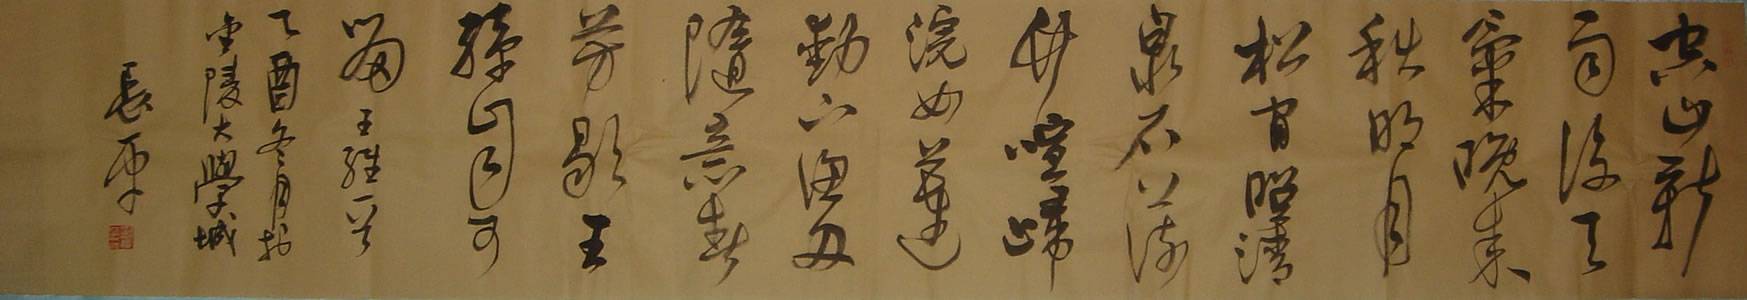 空山新
雨後天
氣晚來
秋明月
松間照清
泉石上流
竹喧歸
浣女蓮
動下漁舟
隨意春
芳歇王
孫自可
留王維一首
乙酉冬月於
金陵大學城
長平